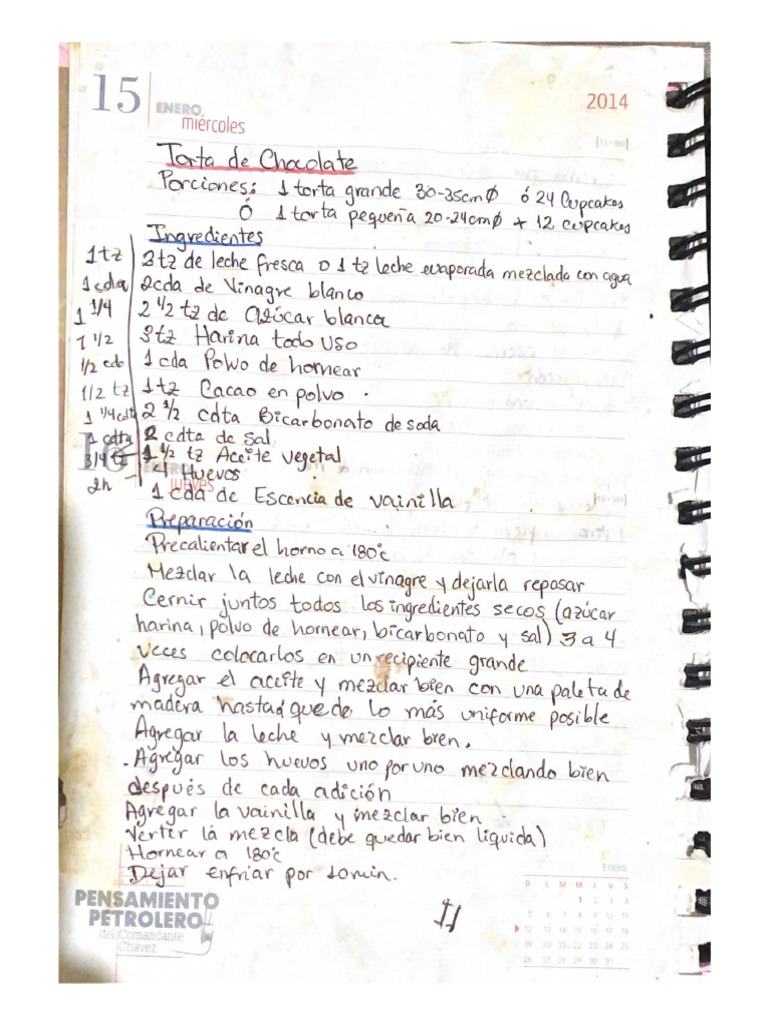 15 ENERO miércoles 2014
Torta de Chocolate
Porciones: 1 torta grande 30-35cmØ ó 24 Cupcakes
Ó 1 torta pequeña 20-24cmØ + 12 cupcakes
Ingredientes
1 tz 2 tz de leche fresca o 1 tz leche evaporada mezclada con agua
1 cdia 2cda de Vinagre blanco
1 1/4 2 1/2 tz de azúcar blanca
1 1/2 3tz Harina todo uso
1/2 cdo 1 cda Polvo de hornear
1/2 tz 1 tz Cacao en polvo .
1 1/4 cdt 2 1/2 cdta Bicarbonato de soda
1 cdta 2 cdta de Sal
3/4 tz 1 1/2 tz Aceite vegetal
2h 4 Huevos
16 ENERO jueves
1 cda de Escencia de vainilla
Preparación
Precalientar el horno a 180°c
Mezclar la leche con el vinagre y dejarla reposar
Cernir juntos todos los ingredientes secos (azúcar
harina, polvo de hornear, bicarbonato y sal) 3 a 4
veces colocarlos en un recipiente grande
Agregar el aceite y mezclar bien con una paleta de
madera hasta quede lo más uniforme posible
Agregar la leche y mezclar bien.
. Agregar los huevos uno por uno mezclando bien
después de cada adición
Agregar la vainilla y mezclar bien
Verter la mezcla (debe quedar bien liquida)
Hornear a 180°c
Dejar enfriar por 10min.
PENSAMIENTO
PETROLERO
del Comandante
Chávez
Enero
D L M M J V S
1 2 3 4
5 6 7 8 9 10 11
12 13 14 15 16 17 18
19 20 21 22 23 24 25
26 27 28 29 30 31